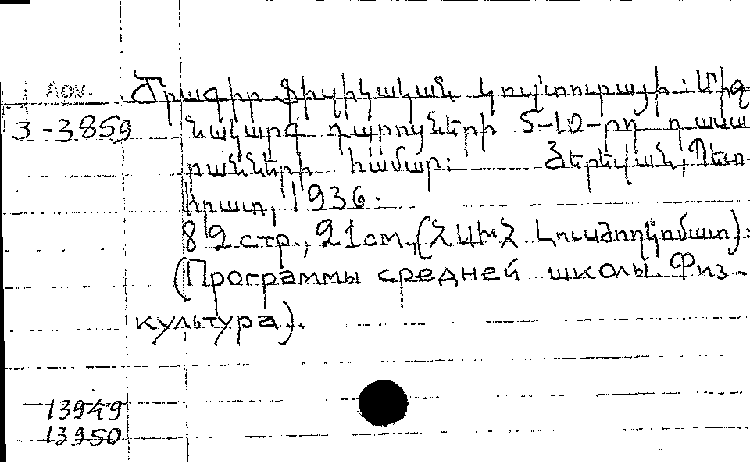 Арм. Ծրագիր ֆիզիկական կուլտուրայի: Միջ
3-3859 նակարգ դպրոցների 5-10-րդ դասա
րանների համար: Յերեվան, Պետ
հրատ, 1936.
82 стр., 21 см, (ՀՍԽՀ Լուսժողկոմատ):
(Программы средней школы. Физ-
культура).
13949
13950